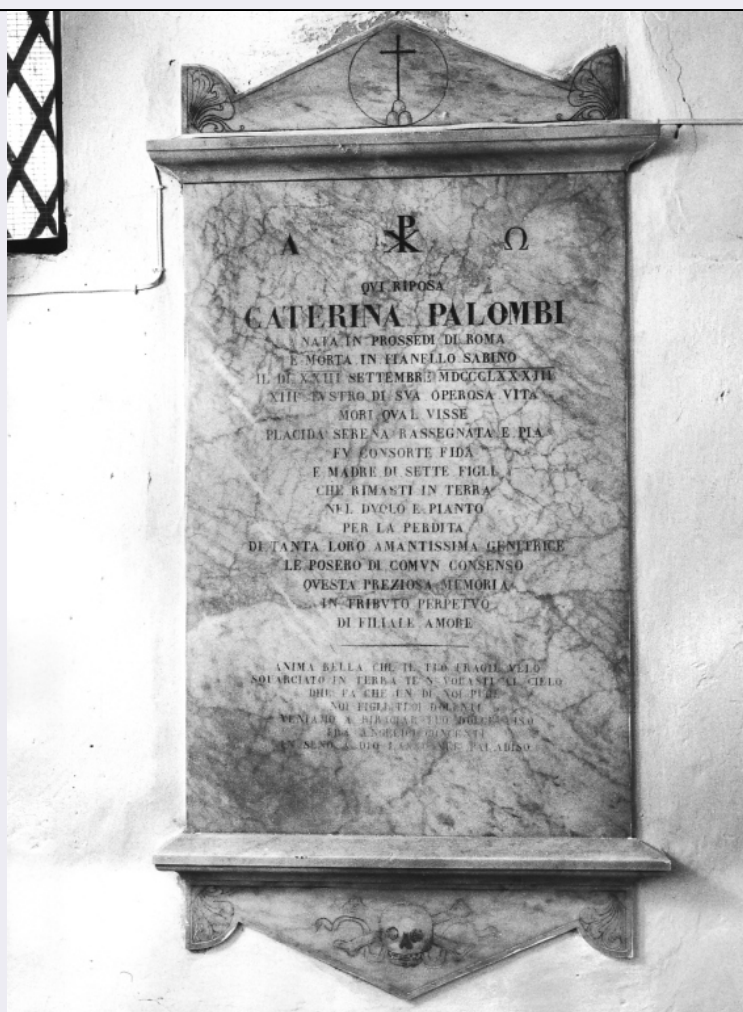 Α ☧ Ω
QVI RIPOSA
CATERINA PALOMBI
NATA IN PROSSEDI DI ROMA
E MORTA IN FIANELLO SABINO
IL DI XXIII SETTEMBRE MDCCCLXXXIII
XIII LVSTRO DI SVA OPEROSA VITA
MORI QVAL VISSE
PLACIDA SERENA RASSEGNATA E PIA
FV CONSORTE FIDA
E MADRE DI SETTE FIGLI
CHE RIMASTI IN TERRA
NEL DVOLO E PIANTO
PER LA PERDITA
DI TANTA LORO AMANTISSIMA GENITRICE
LE POSERO DI COMVN CONSENSO
QVESTA PREZIOSA MEMORIA
IN TRIBVTO PERPETVO
DI FILIALE AMORE
ANIMA BELLA CHE IL TUO FRAGIL VELO
SQUARCIATO IN TERRA TE N VOLASTI AL CIELO
DHE FA CHE UN DI NOI PURE
NOI FIGLI TUOI DOLENTI
VENIAMO A RIBACIAR TUO DOLCE VISO
FRA ANGELICI CONCENTI
IN SENO A DIO PARADISO